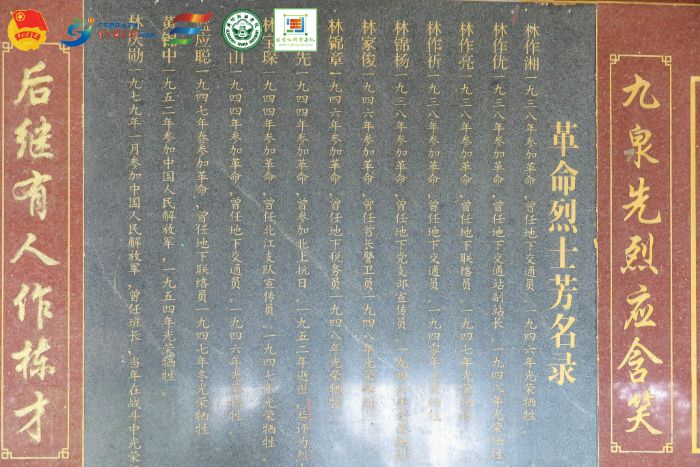 九泉先烈应含笑
革命烈士芳名录
林作湘一九三八年参加革命,曾任地下交通员。一九四六年光荣牺牲。
林作优一九三八年参加革命,曾任地下交通站副站长 一九四八年光荣牺牲
林作亮一九三八年参加革命,曾任地下联络员。一九四七年光荣牺牲
林作祈一九三八年参加革命,曾任地下交通员。一九四 年光荣牺牲
林锦杨一九三八年参加革命,曾任地下党支部宣传员。一九四 年 荣牺牲
林家俊一九四六年参加革命,曾任首长警卫员一九四八年光荣牺牲
林锦章一九四六年参加革命,曾任地下税务员一九四八年光荣牺牲
先一九四四年参加革命,曾参加北上抗日。一九五二年逝世,后评为烈
林 琛一九四四年参加革命,曾任北江支队宣传员。一九四七年光荣牺牲。
山一九四四年参加革命,曾任地下交通员。一九四六年光荣牺牲
应聪一九四七年春参加革命,曾任地下联络员一九四七年冬光荣牺牲
黄 中一九五二年参加中国人民解放军,一九五四年光荣牺牲。
林庆勋一九七九年一月参加中国人民解放军,曾任班长,当年在战斗中光荣
后继有人作栋才